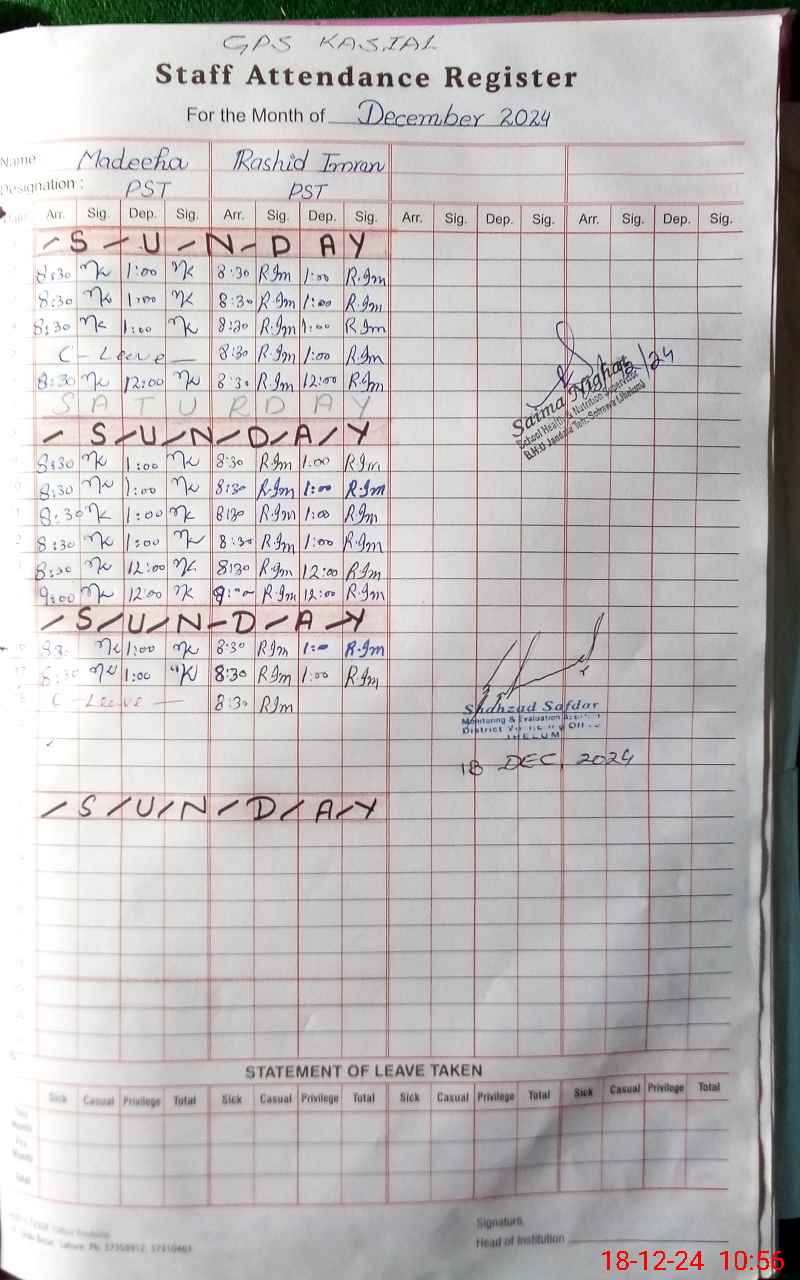 GPS KASIAL
Staff Attendance Register
For the Month of December 2024
Name Madeeha Rashid Imran
Designation : PST PST
Arr. Sig. Dep. Sig. Arr. Sig. Dep. Sig. Arr. Sig. Dep. Sig. Arr. Sig. Dep. Sig.
/ S / U / N / D A Y
8:30 MK 1:00 MK 8:30 R.Im 1:00 R.Im
8:30 MK 1:00 MK 8:30 R.Im 1:00 R.Im
8:30 MK 1:00 MK 8:30 R.Im 1:00 R.Im
C - Leeve — 8:30 R.Im 1:00 R.Im
8:30 MK 12:00 MK 8:30 R.Im 12:00 R.Im
S A T U R D A Y
/ S / U / N / D / A / Y
8:30 MK 1:00 MK 8:30 R.Im 1:00 R.Im
8:30 MK 1:00 MK 8:30 R.Im 1:00 R.Im
8:30 MK 1:00 MK 8:30 R.Im 1:00 R.Im
8:30 MK 1:00 MK 8:30 R.Im 1:00 R.Im
8:30 MK 12:00 MK 8:30 R.Im 12:00 R.Im
9:00 MK 12:00 MK 9:00 R.Im 12:00 R.Im
/ S / U / N / D / A / Y
MK 1:00 MK 8:30 R.Im 1:00 R.Im
8:30 MK 1:00 MK 8:30 R.Im 1:00 R.Im
C - Leeve — 8:30 R.Im
/ S / U / N / D / A / Y
Saima Nighat
School Health & Nutrition Supervisor
B.H.U Jandala Teh: Sohawa (Jhelum)
Shahzad Safdar
Monitoring & Evaluation
District
JHELUM
18 DEC, 2024
STATEMENT OF LEAVE TAKEN
Sick Casual Privilege Total Sick Casual Privilege Total Sick Casual Privilege Total Sick Casual Privilege Total
Month
Month
Total
Signature,
Head of Institution
18-12-24 10:56